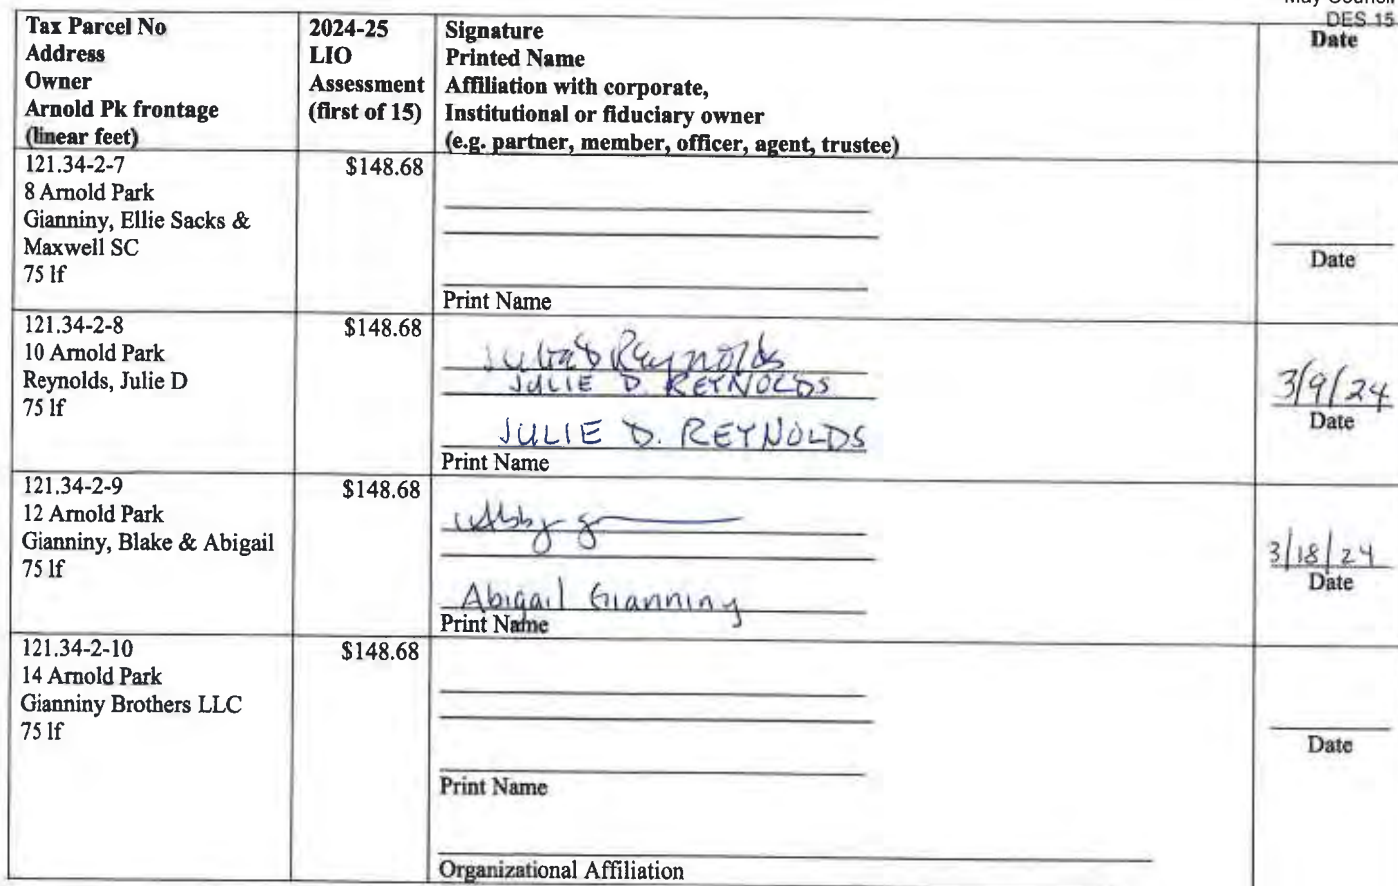 May Council
DES 15
Tax Parcel No
Address
Owner
Arnold Pk frontage
(linear feet)
2024-25
LIO
Assessment
(first of 15)
Signature
Printed Name
Affiliation with corporate,
Institutional or fiduciary owner
(e.g. partner, member, officer, agent, trustee)
Date
121.34-2-7
8 Arnold Park
Gianniny, Ellie Sacks &
Maxwell SC
75 lf
$148.68
Print Name
Date
121.34-2-8
10 Arnold Park
Reynolds, Julie D
75 lf
$148.68
Julie D Reynolds
JULIE D. REYNOLDS
JULIE D. REYNOLDS
Print Name
3/9/24
Date
121.34-2-9
12 Arnold Park
Gianniny, Blake & Abigail
75 lf
$148.68
Abby G
Abigail Gianniny
Print Name
3/18/24
Date
121.34-2-10
14 Arnold Park
Gianniny Brothers LLC
75 lf
$148.68
Print Name
Organizational Affiliation
Date